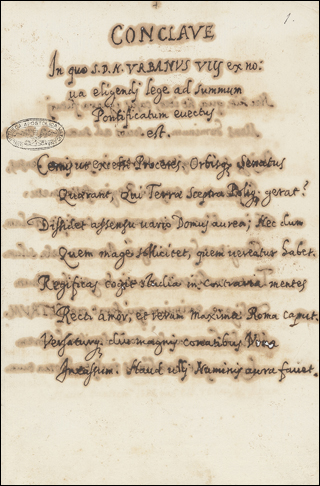 1.
CONCLAVE
In quo S.D.N. VRBANVS VIIJ ex no:
ua eligendj lege ad summum
Pontificatum euectus
est.
Cernis ut excessit Proceres, Orbisq Senatus
Quaerant, Qui Terrae Sceptra Poliq gerat?
Distilet assensu uario Domus aurea; Nec dum
Quem mage sollicitet, quem uereatur habet.
Regificas cogit studia in contraria mentes
Recti amor, et rerum maxima Roma caput.
Versatur diu magnis conatibus
Intessum. Haud ullj Numinis aura fauet.